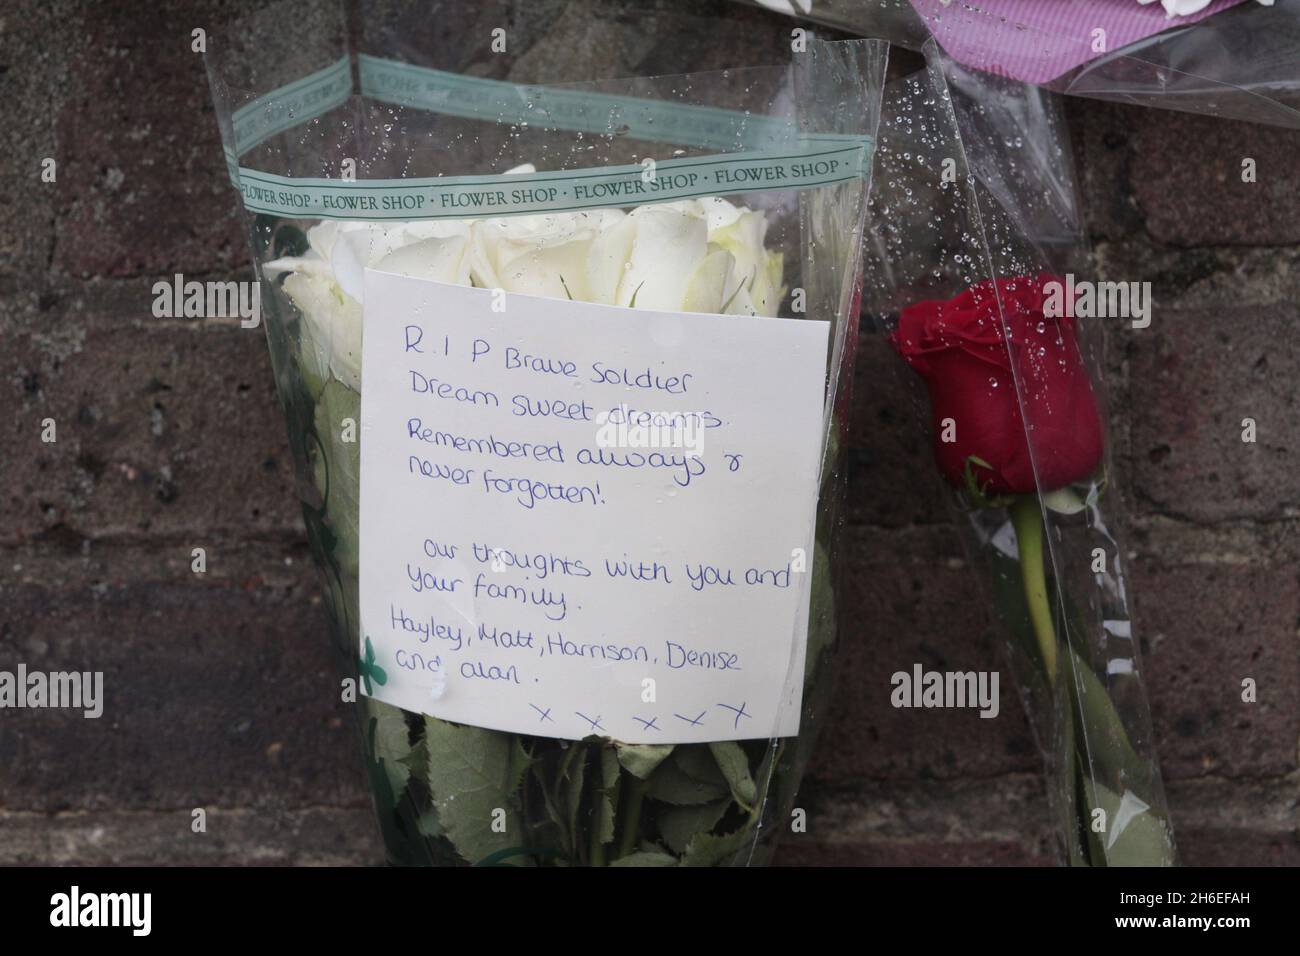 FLOWER SHOP · FLOWER SHOP · FLOWER SHOP · FLOWER SHOP · FLOWER SHOP ·
R.I P Brave Soldier.
Dream sweet dreams.
Remembered always &
never forgotten!
our thoughts with you and
your family.
Hayley, Matt, Harrison, Denise
and alan.
x x x x x
alamy
Image ID: 2H6EFAH
www.alamy.com